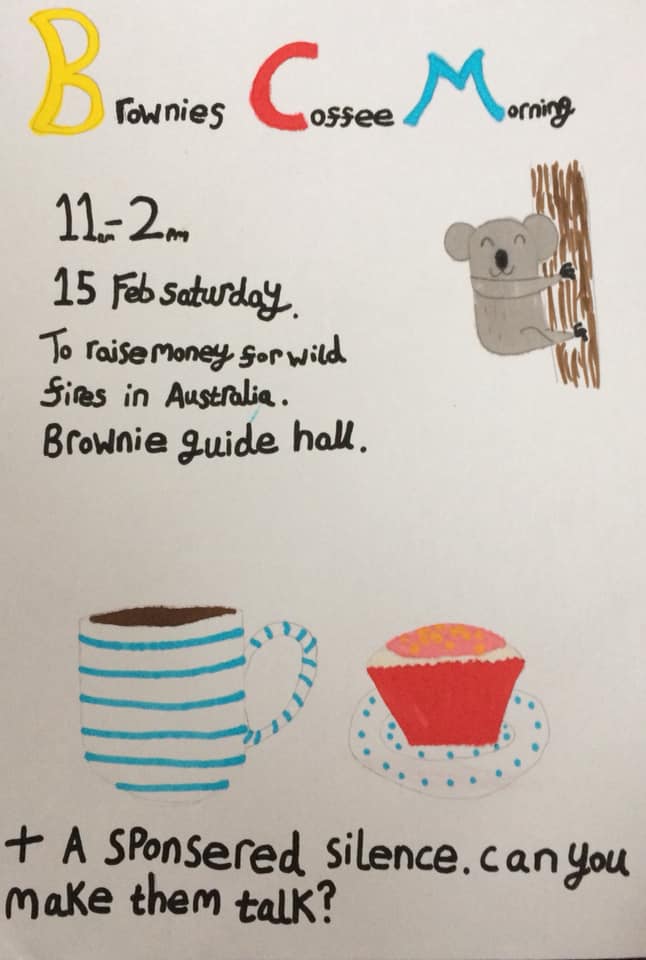 Brownies Coffee Morning
11am-2pm
15 Feb saturday.
To raise money for wild
fires in Australia.
Brownie guide hall.
+ A sponsered silence. can you
make them talk?